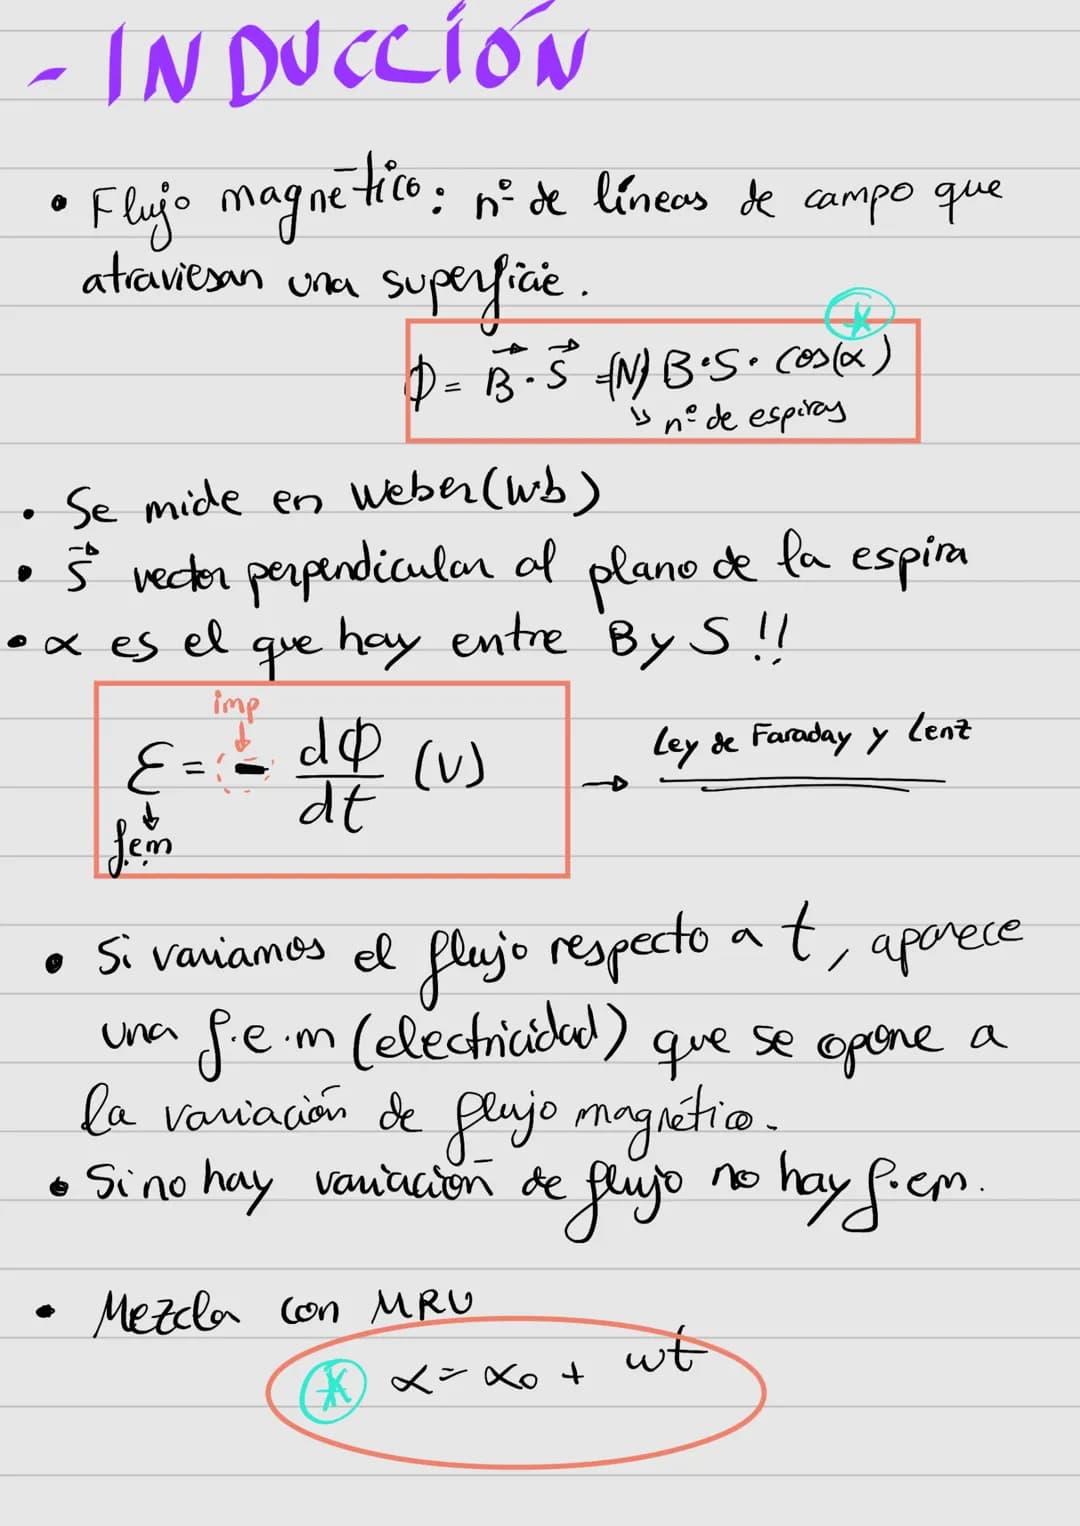 - INDUCCIÓN
• Flujo magnético: nº de líneas de campo que
atraviesan una superficie.
*
Φ = B⃗ · S⃗ = (N) B·S· cos(α)
↳ nº de espiras
• Se mide en Weber (Wb)
• S⃗ vector perpendicular al plano de la espira
• α es el que hay entre B y S!!
imp
↓
ε = - dΦ/dt (V) → Ley de Faraday y Lenz
↓
f.e.m
• Si variamos el flujo respecto a t, aparece
una f.e.m (electricidad) que se opone a
la variación de flujo magnético.
• Si no hay variación de flujo no hay f.em.
• Mezcla con MRU
* α = α₀ + ωt